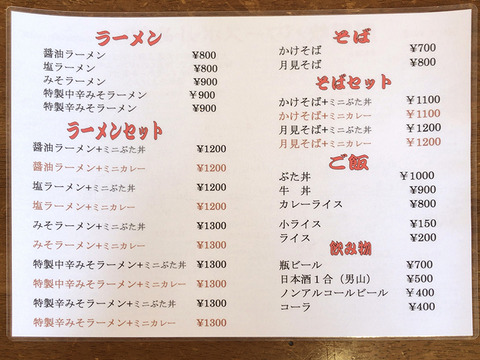 ラーメン
醤油ラーメン ¥800
塩ラーメン ¥800
みそラーメン ¥900
特製中辛みそラーメン ¥900
特製辛みそラーメン ¥900
ラーメンセット
醤油ラーメン+ミニぶた丼 ¥1200
醤油ラーメン+ミニカレー ¥1200
塩ラーメン+ミニぶた丼 ¥1200
塩ラーメン+ミニカレー ¥1200
みそラーメン+ミニぶた丼 ¥1300
みそラーメン+ミニカレー ¥1300
特製中辛みそラーメン+ミニぶた丼 ¥1300
特製中辛みそラーメン+ミニカレー ¥1300
特製辛みそラーメン+ミニぶた丼 ¥1300
特製辛みそラーメン+ミニカレー ¥1300
そば
かけそば ¥700
月見そば ¥800
そばセット
かけそば+ミニぶた丼 ¥1100
かけそば+ミニカレー ¥1100
月見そば+ミニぶた丼 ¥1200
月見そば+ミニカレー ¥1200
ご飯
ぶた丼 ¥1000
牛丼 ¥900
カレーライス ¥800
小ライス ¥150
ライス ¥200
飲み物
瓶ビール ¥700
日本酒1合(男山) ¥500
ノンアルコールビール ¥400
コーラ ¥400